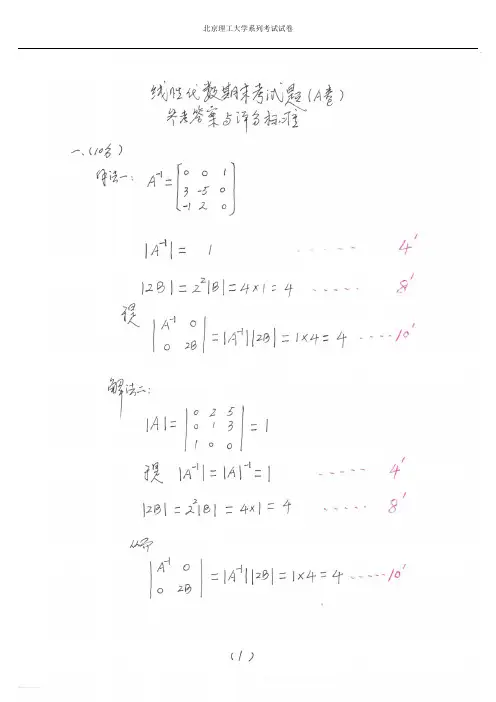 北京理工大学系列考试试卷
线性代数期末考试题(A卷)
参考答案与评分标准
一、(10分)
解法一: A⁻¹ = [0 0 1
3 -5 0
-1 2 0]
|A⁻¹| = 1 ------ 4'
|2B| = 2²|B| = 4×1 = 4 ----- 8'
于是
|A⁻¹ 0
0 2B| = |A⁻¹||2B| = 1×4 = 4 -----10'
解法二:
|A| = |0 2 5
0 1 3
1 0 0| = 1
于是 |A⁻¹| = |A|⁻¹ = 1 ----- 4'
|2B| = 2²|B| = 4×1 = 4 ----- 8'
从而
|A⁻¹ 0
0 2B| = |A⁻¹||2B| = 1×4 = 4 -----10'
(1)